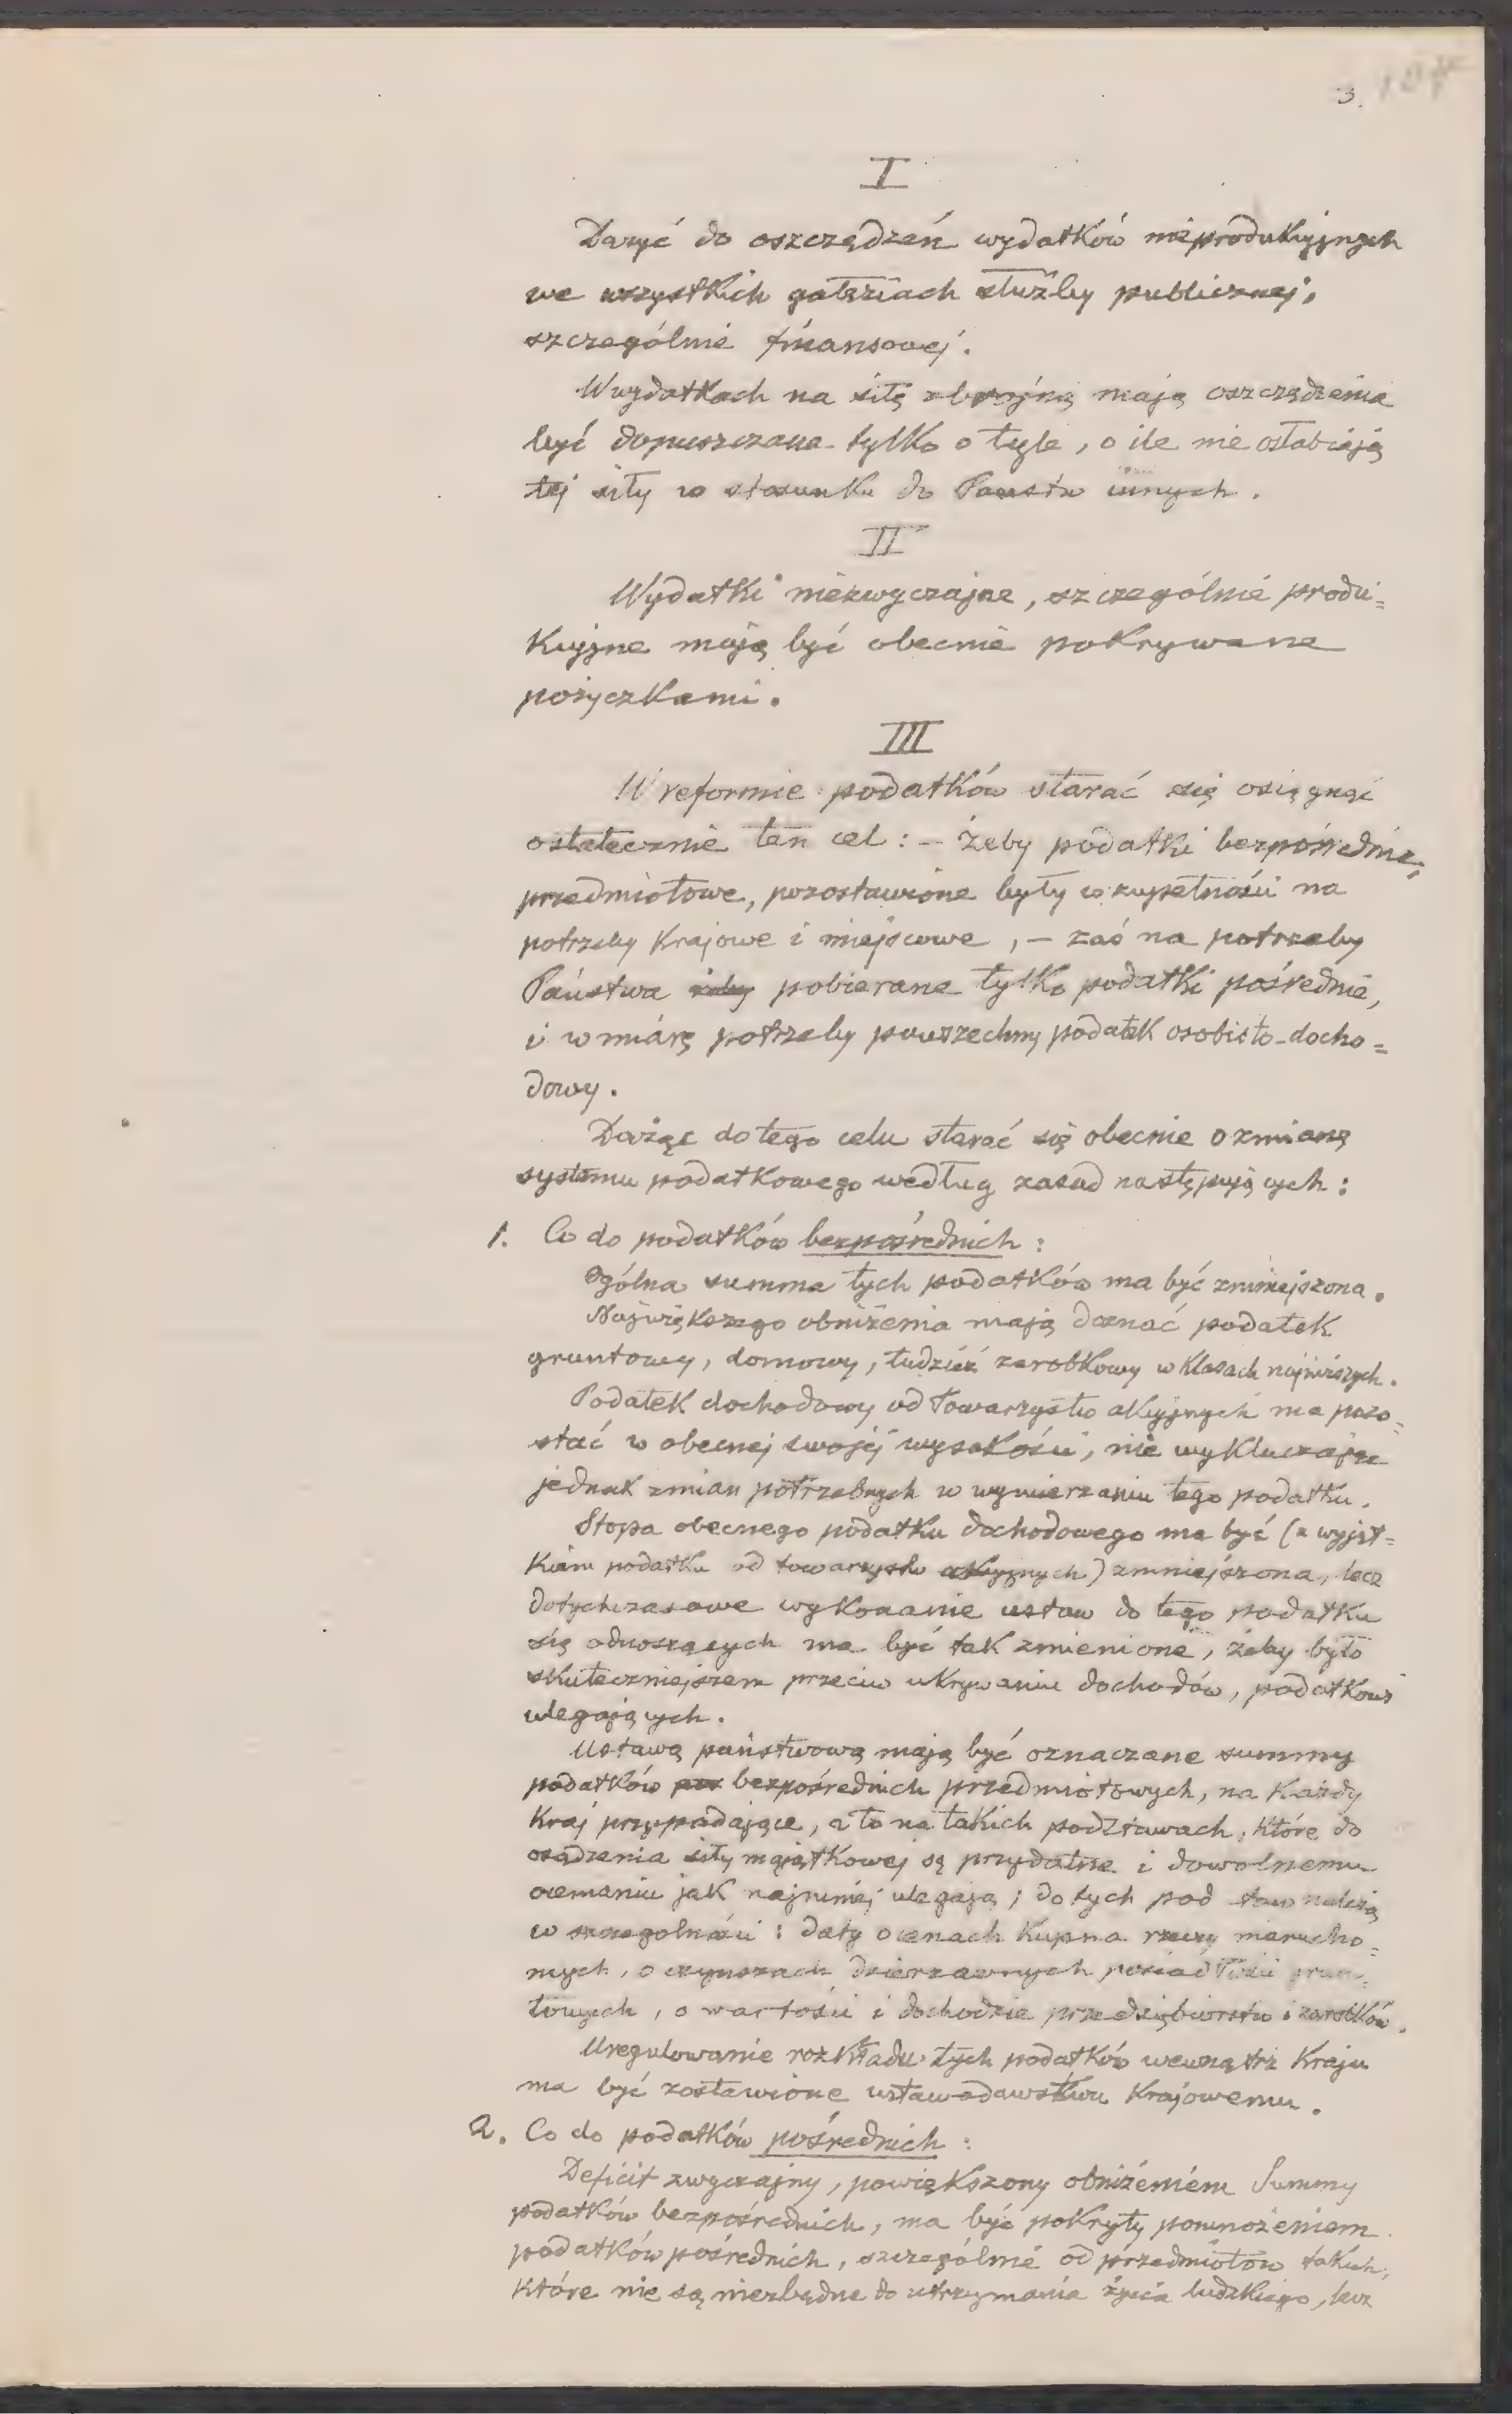 3. 107
I
Dążyć do oszczędzeń wydatków nieprodukcyjnych
we wszystkich gałęziach służby publicznej,
szczególnie finansowej.
W wydatkach na siłę zbrojną mają oszczędzenia
być dopuszczane tylko o tyle, o ile nie osłabiają
tej siły w stosunku do Państw innych.
II
Wydatki niezwyczajne, szczególnie produ=
kcyjne mają być obecnie pokrywane
pożyczkami.
III
W reformie podatków starać się osiągnąć
ostatecznie ten cel: – żeby podatki bezpośrednie,
przedmiotowe, pozostawione były w zupełności na
potrzeby krajowe i miejscowe, – zaś na potrzeby
Państwa pobierane tylko podatki pośrednie,
i w miarę potrzeby powszechny podatek osobisto-docho=
dowy.
Dążąc do tego celu starać się obecnie o zmianę
systemu podatkowego według zasad następujących:
1. Co do podatków bezpośrednich:
Ogólna summa tych podatków ma być zmniejszona.
Największego obniżenia mają doznać podatek
gruntowy, domowy, tudzież zarobkowy w klasach najniższych.
Podatek dochodowy od towarzystw akcyjnych ma pozo=
stać w obecnej swojej wysokości, nie wykluczając
jednak zmian potrzebnych w wymierzaniu tego podatku.
Stopa obecnego podatku dochodowego ma być (z wyjąt=
kiem podatku od towarzystw akcyjnych) zmniejszona, lecz
dotychczasowe wykonanie ustaw do tego podatku
się odnoszących ma być tak zmienione, żeby było
skuteczniejszem przeciw ukrywaniu dochodów, podatkowi
ulegających.
Ustawą państwową mają być oznaczane summy
podatków bezpośrednich przedmiotowych, na każdy
kraj przypadające, a to na takich podstawach, które do
osądzenia siły majątkowej są przydatne i dowolnemu
ocenianiu jak najmniej ulegają; do tych pod staw należą
w szczególności: daty o cenach kupna rzeczy nierucho=
mych, o czynszach dzierżawnych posiadłości grun=
towych, o wartości i dochodzie przedsiębiorstw i zarobków.
Uregulowanie rozkładu tych podatków wewnątrz kraju
ma być zostawione ustawodawstwu krajowemu.
2. Co do podatków pośrednich:
Deficit zwyczajny, powiększony obniżeniem Summy
podatków bezpośrednich, ma być pokryty pomnożeniem
podatków pośrednich, szczególnie od przedmiotów takich,
które nie są niezbędne do utrzymania życia ludzkiego, lecz